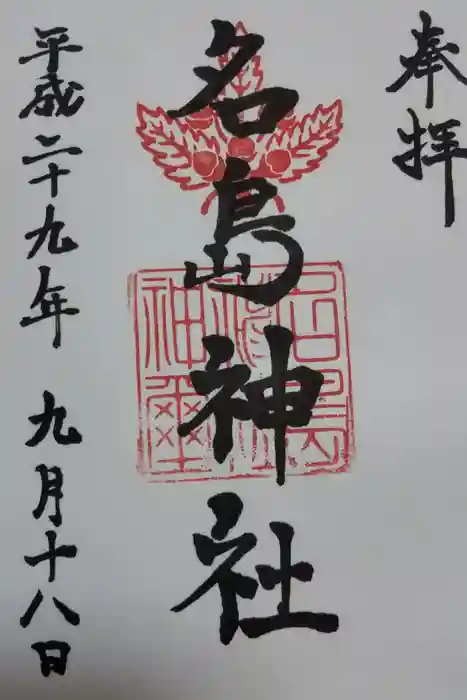 奉拝
名島神社
平成二十九年 九月十八日